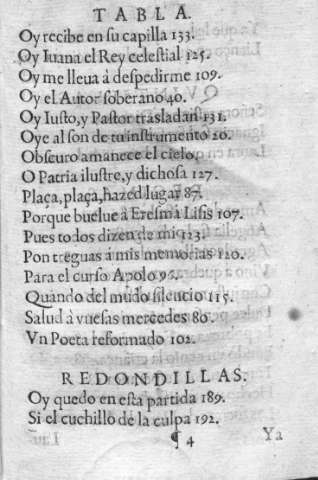 TABLA.
Oy recibe en ſu capilla 133.
Oy Iuana el Rey celeſtial 125.
Oy me lleua à deſpedirme 109.
Oy el Autor ſoberano 40.
Oy Iuſto, y Paſtor trasladan 131.
Oye al ſon de tu inſtrumento 20.
Obſcuro amanece el cielo,
O Patria iluſtre, y dichoſa 127.
Plaça, plaça, hazed lugar 87.
Porque buelue à Ereſma Liſis 107.
Pues todos dizen de mi 123.
Pon treguas à mis memorias 120.
Para el curſo Apolo 96.
Quando del mudo ſilencio 115.
Salud à vueſas mercedes 80.
Vn Poeta reformado 102.
REDONDILLAS.
Oy quedo en eſta partida 189.
Si el cuchillo de la culpa 192.
¶ 4 Ya